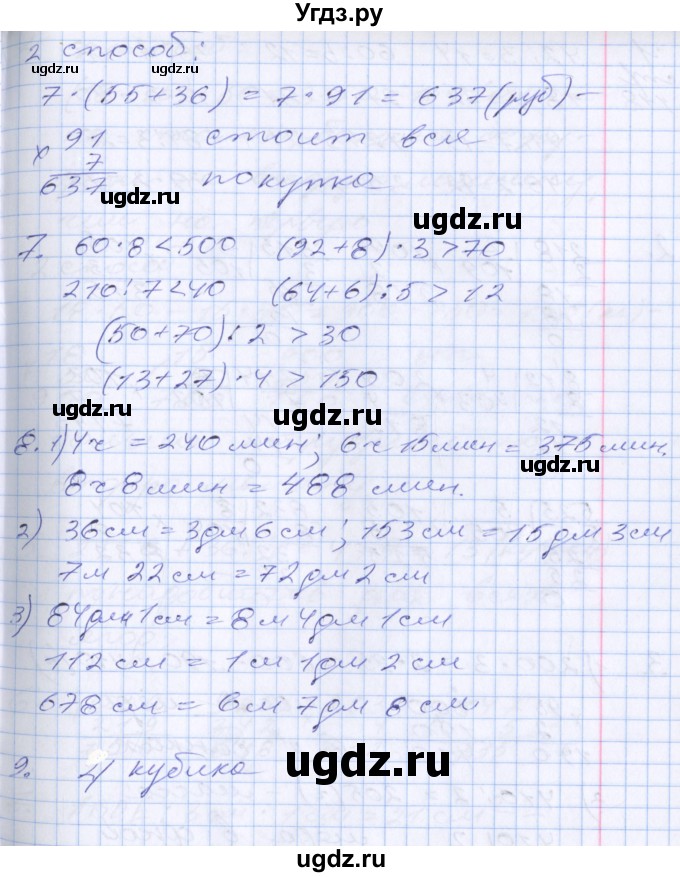 Угдз.ру
2 способ:
ugdz.ru ugdz.ru
7·(55+36) = 7·91 = 637(руб) –
× 91 стоит вся
7
637 покупка
ugdz.ru
ugdz.ru
7. 60·8<500 (92+8)·3>70
210:7<40 (64+6):5>12
ugdz.ru
(50+70):2 >30
(13+27)·4>150
ugdz.ru
8. 1) 4ч = 240 мин; 6ч 15мин = 375 мин.
ugdz.ru
8ч 8мин = 488 мин.
2) 36см = 3дм 6см; 153см = 15дм 3см
ugdz.ru
7м 22см = 72дм 2см
3) 84дм 1см = 8м 4дм 1см
112см = 1м 1дм 2см
678см = 6м 7дм 8см
9. 4 кубика
ugdz.ru
ugdz.ru